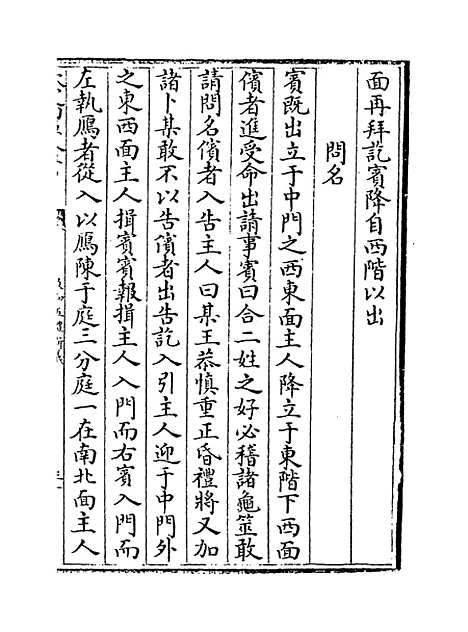 面再拜訖賓降自西階以出
問名
賓既出立于中門之西東面主人降立于東階下西面
儐者進受命出請事賓曰合二姓之好必稽諸龜筮敢
請問名儐者入告主人曰某王恭慎重正昏禮將又加
諸卜某敢不以告儐者出告訖入引主人迎于中門外
之東西面主人揖賓賓報揖主人入門而右賓入門而
左執鴈者從入以鴈陳于庭三分庭一在南北面主人